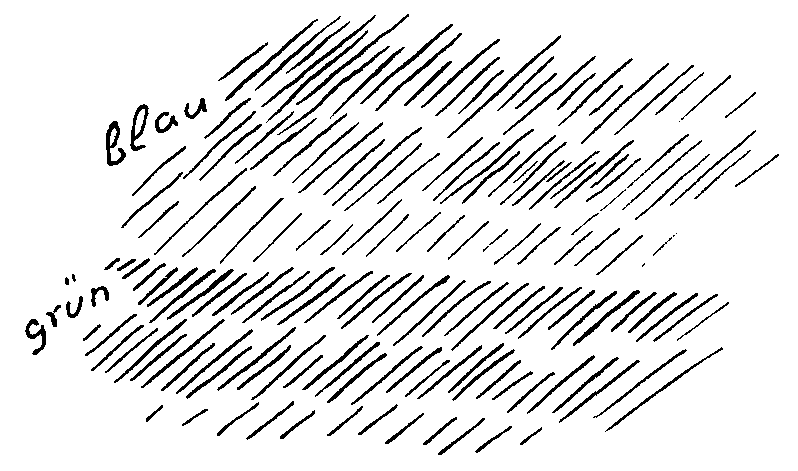 blau
grün